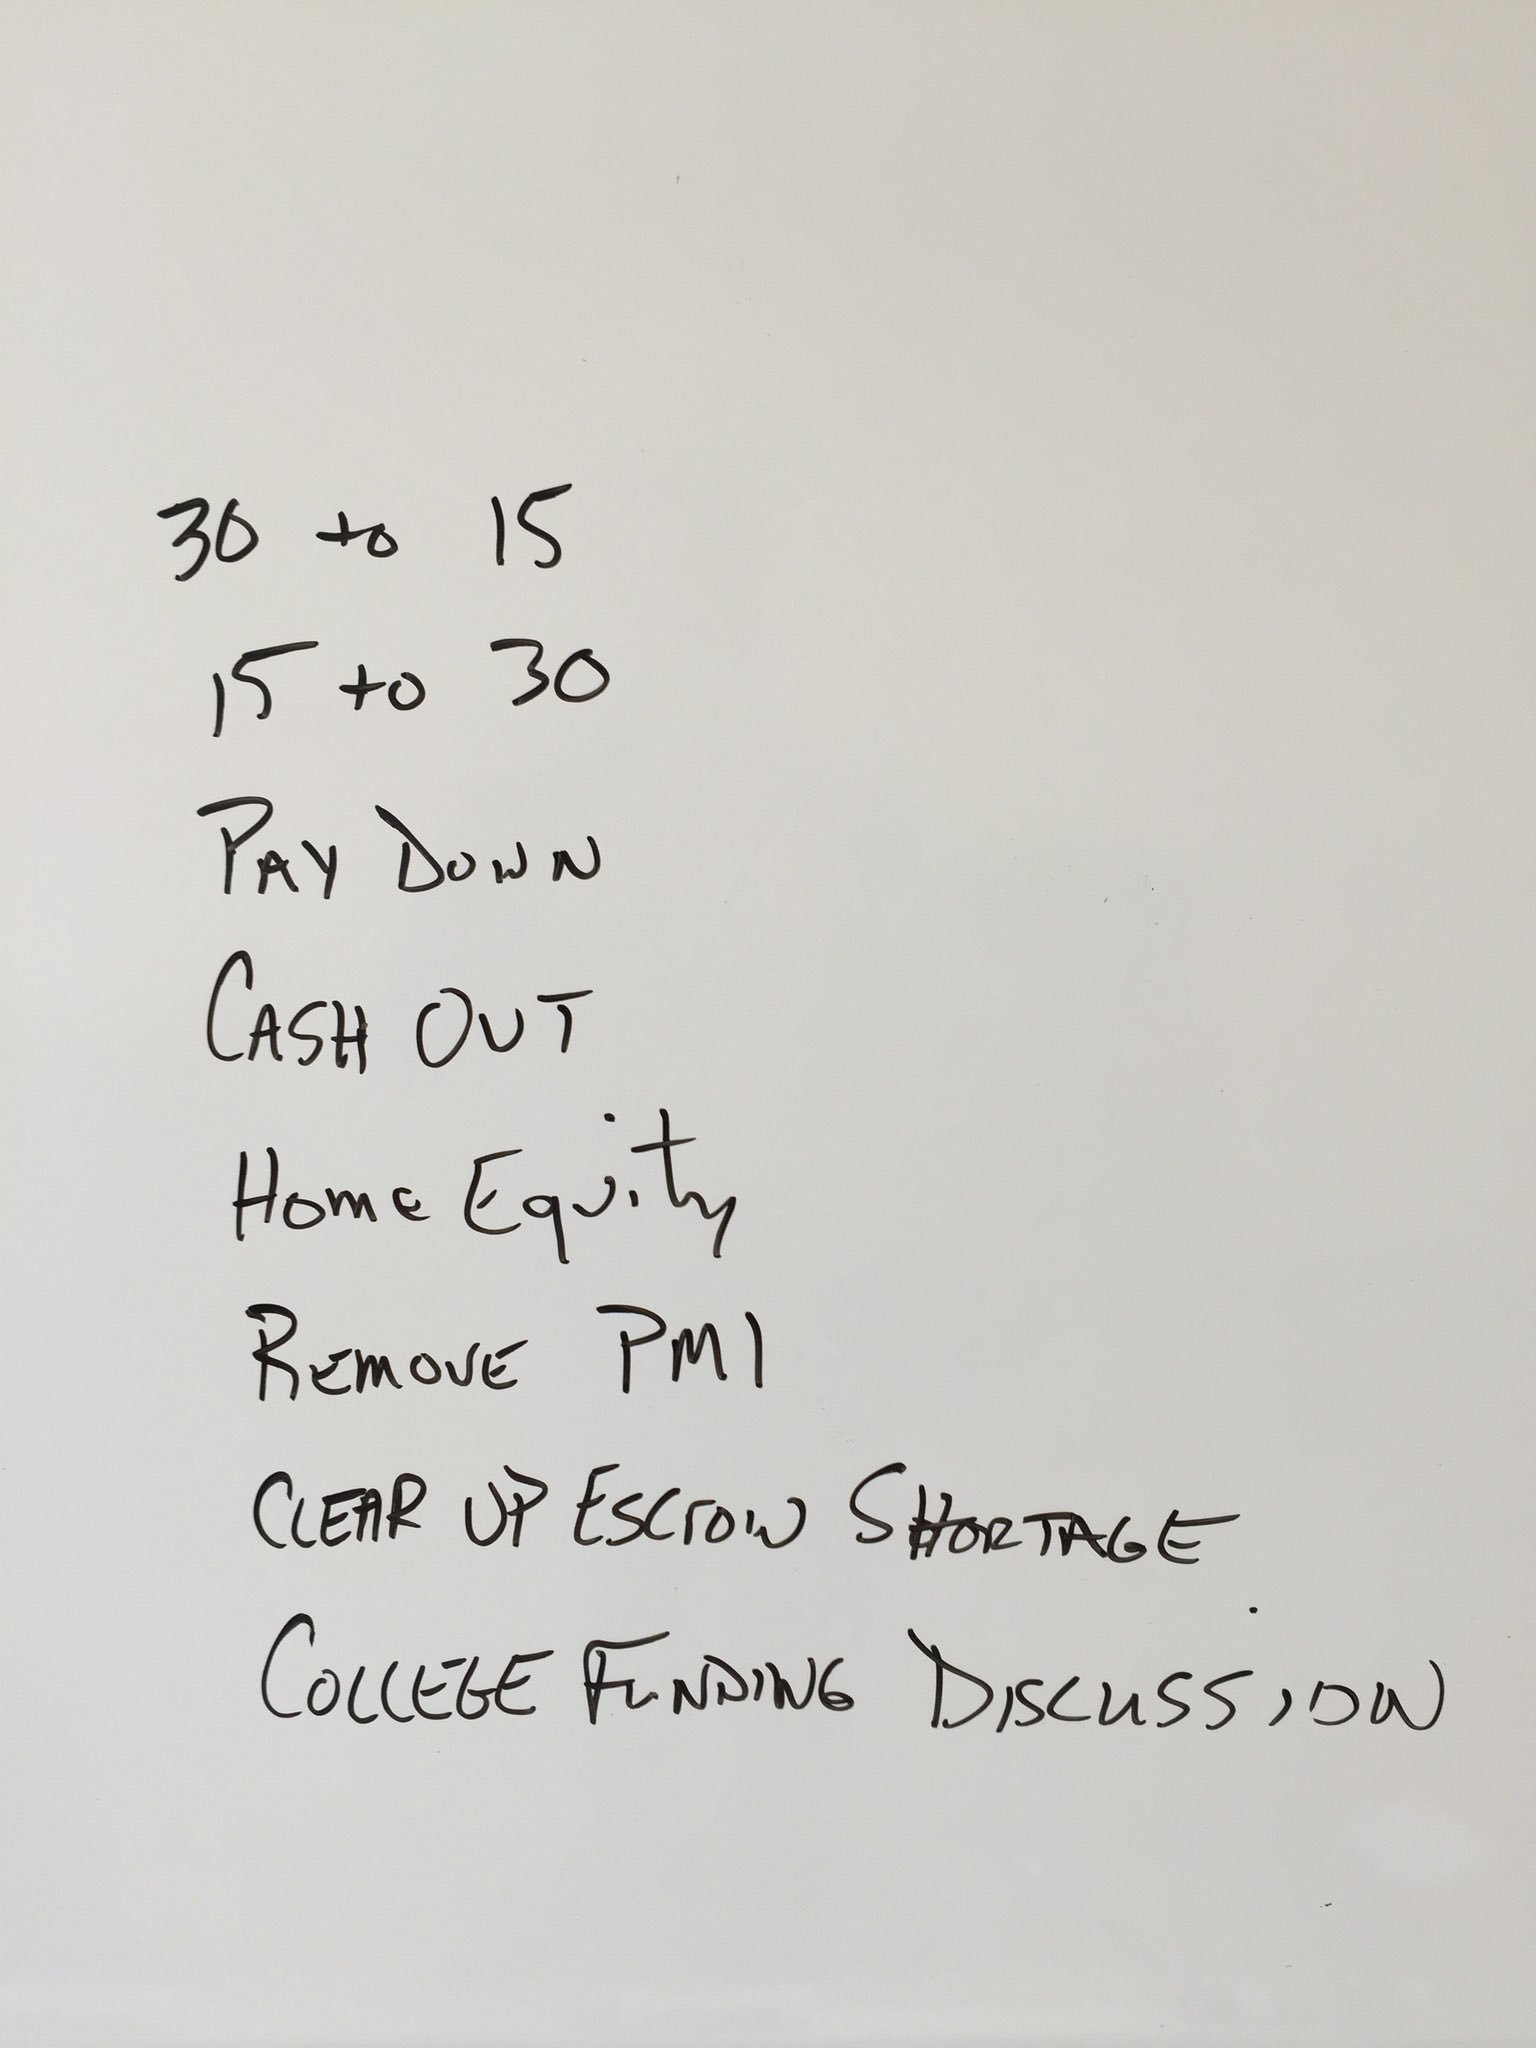 30 to 15
15 to 30
PAY DOWN
CASH OUT
Home Equity
REMOVE PMI
CLEAR UP ESCrOW SHORTAGE
COLLEGE FUNDING DISCUSSION